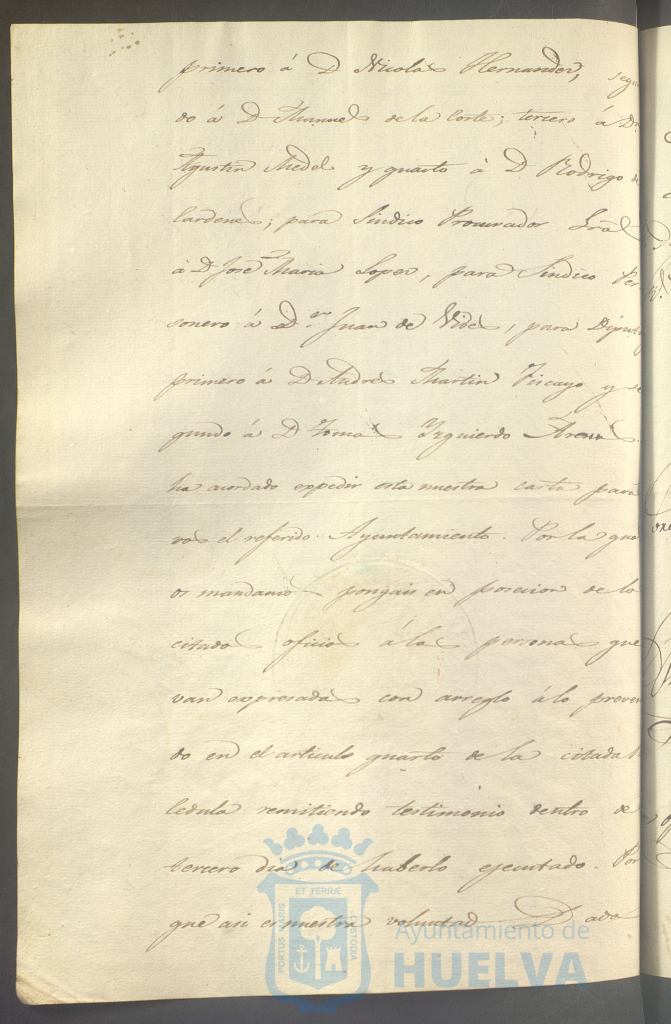 primero á D Nicolas Hernandez, segun
do á D Manuel de la Corte; tercero á Dn
Agustin Medel y quarto á D Rodrigo de
Cardenas; para Sindico Procurador Gral
á D Jose Maria Lopez, para Sindico Per
sonero á Dn Juan de Vides, para Diputa
primero á D Andres Martin Viscayo y se
gundo á D Tomas Yzquierdo
ha acordado expedir esta nuestra carta para
vos el referido Ayuntamiento. Por la que
os mandamos pongais en posecion de los
citados oficios á las personas que
van expresadas con arreglo á lo preveni
do en el articulo quarto de la citada
Cedula remitiendo testimonio dentro de
tercero dia de haberlo ejecutado. Por
que asi es nuestra voluntad Dado
PORTUS MARIS
ET TERRÆ
CUSTODIA
Ayuntamiento de
HUELVA